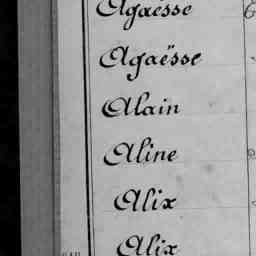 Agaësse
Agaësse
Alain
Aline
Alix
Alix